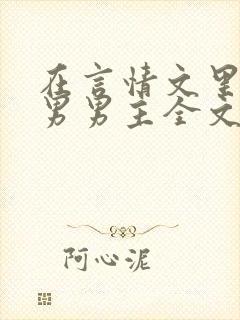 在言情文里
男男主全文
阿心泥